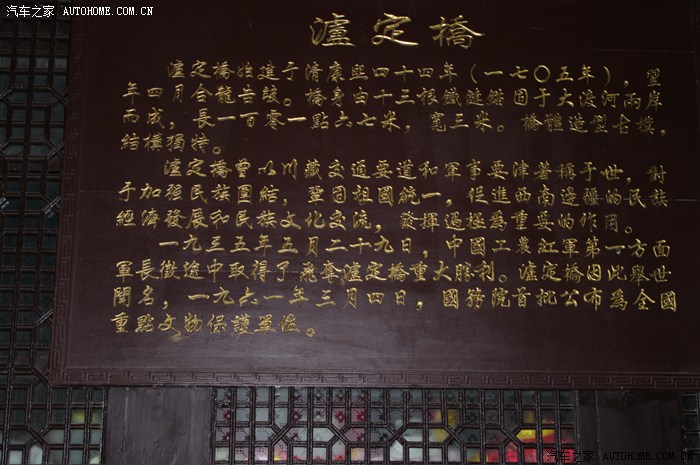 汽车之家 AUTOHOME.COM.CN
瀘定橋
瀘定橋始建于清康熙四十四年（一七〇五年），翌
年四月合龍告竣。橋身由十三根鐵鏈錨固于大渡河兩岸
而成，長一百零一點六七米，寬三米。橋體造型古樸，
結構獨特。
瀘定橋曾以川藏交通要道和軍事要津著稱于世，對
于加强民族團結，鞏固祖國統一，促進西南邊疆的民族
經濟發展和民族文化交流，發揮過極爲重要的作用。
一九三五年五月二十九日，中國工農紅軍第一方面
軍長徵途中取得了飛奪瀘定橋重大勝利。瀘定橋因此舉世
聞名，一九六一年三月四日，國務院首批公布爲全國
重點文物保護單位。
汽车之家 AUTOHOME.COM.CN